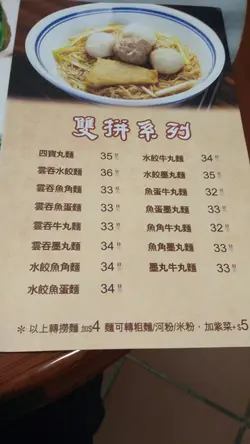 雙拼系列
四寶丸麵 35
雲吞水餃麵 36
雲吞魚角麵 33
雲吞魚蛋麵 33
雲吞牛丸麵 33
雲吞墨丸麵 34
水餃魚角麵 34
水餃魚蛋麵 34
水餃牛丸麵 34
水餃墨丸麵 35
魚蛋牛丸麵 32
魚蛋墨丸麵 33
魚角牛丸麵 32
魚角墨丸麵 33
墨丸牛丸麵 33
＊以上轉撈麵 加$4 麵可轉粗麵/河粉/米粉，加紫菜+$5